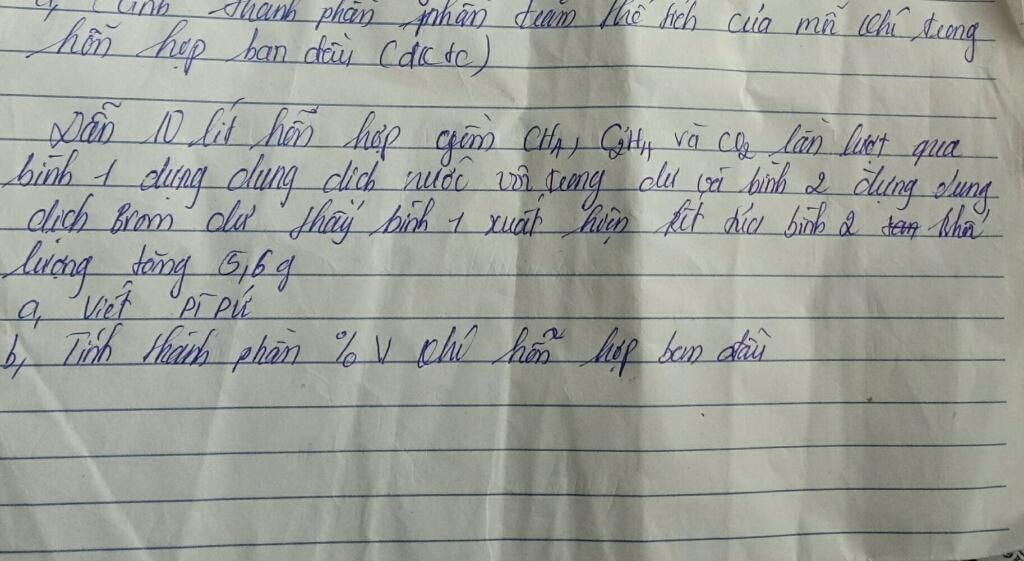 a, Tính thành phần phần trăm thể tích của mỗi khí trong
hỗn hợp ban đầu (đktc)
Dẫn 10 lít hỗn hợp gồm CH4, C2H4 và CO2 lần lượt qua
bình 1 đựng dung dịch nước vôi trong dư và bình 2 đựng dung
dịch Brom dư thấy bình 1 xuất hiện kết tủa bình 2 khối
lượng tăng 5,6 g
a, Viết PTPỨ
b, Tính thành phần % V khí hỗn hợp ban đầu